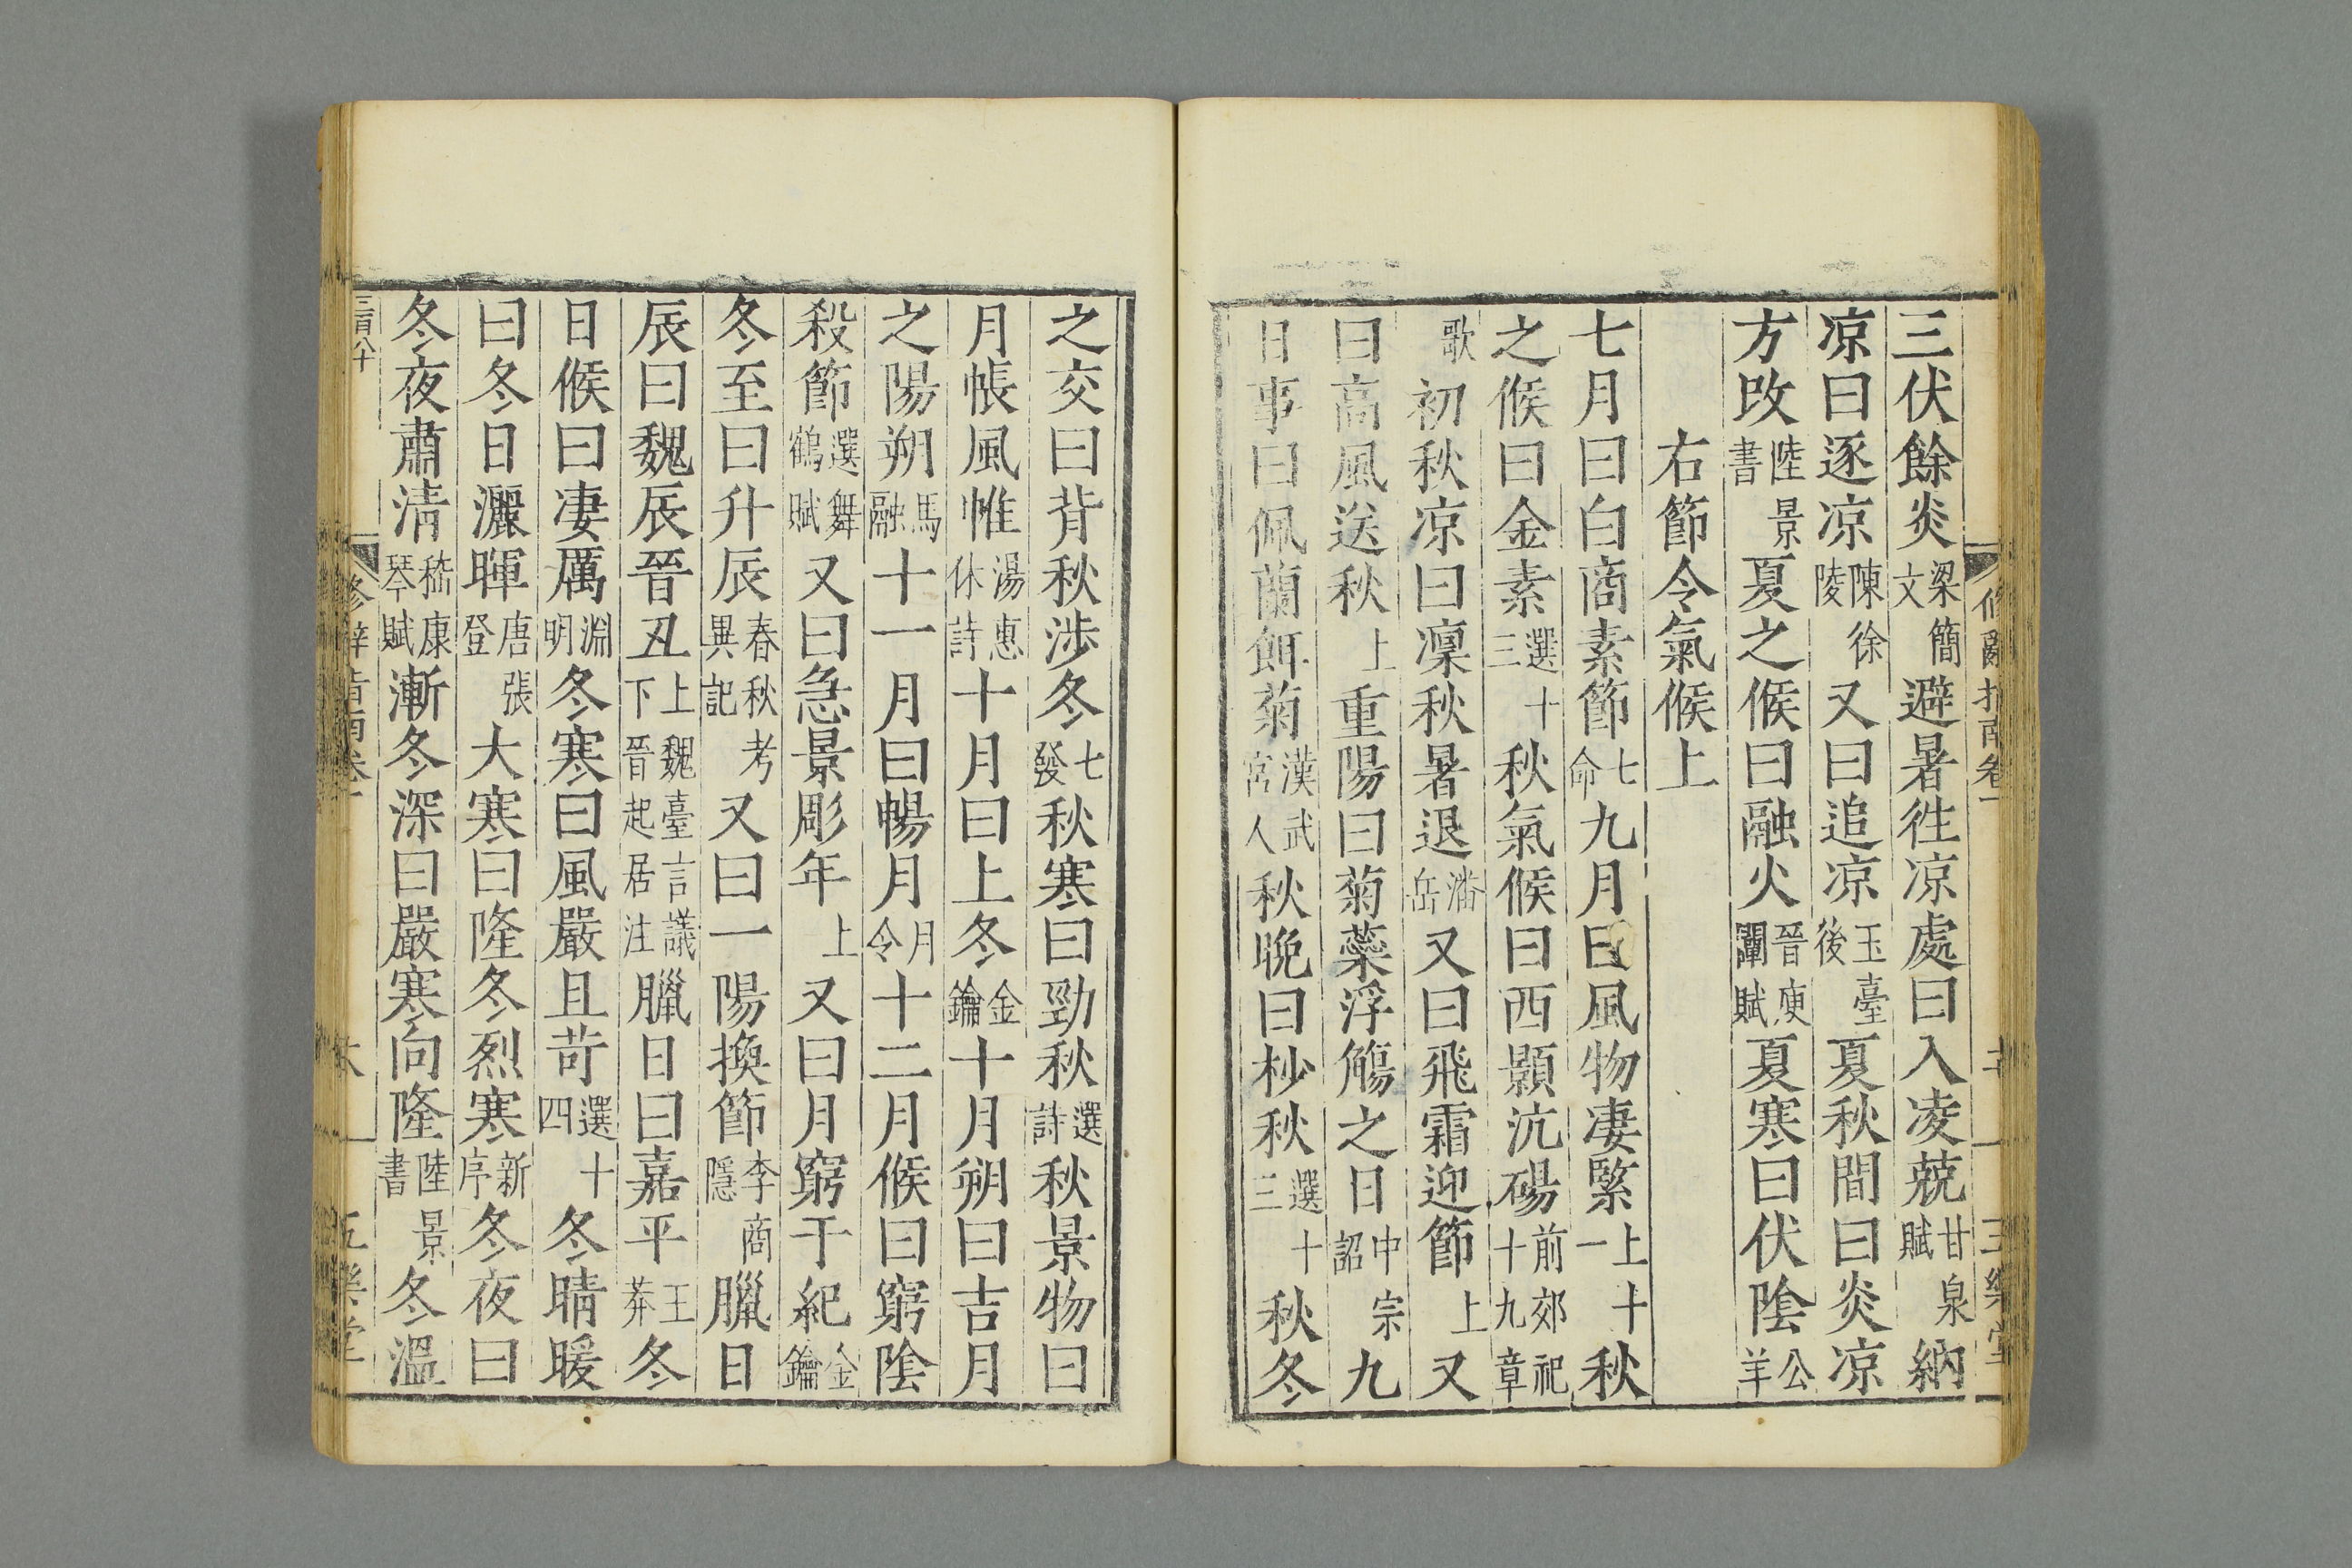 三伏餘炎梁簡文避暑徃凉處曰入凌兢甘泉賦納
凉曰逐凉陳徐陵又曰追凉玉臺後夏秋間曰炎凉
方改陸景書夏之候曰融火晉庾闡賦夏寒曰伏陰公羊
右節令氣候上
七月曰白商素節七命九月曰風物凄緊上十一秋
之候曰金素選十三秋氣候曰西顥沆碭前郊祀十九章
歌初秋凉曰凜秋暑退潘岳又曰飛霜迎節上又
曰高風送秋上重陽曰菊蘂浮觴之日中宗詔九
日事曰佩蘭餌菊漢武宮人秋晚曰杪秋選十三秋冬
之交曰背秋涉冬七發秋寒曰勁秋選詩秋景物曰
月帳風帷湯惠休詩十月曰上冬金鑰十月朔曰吉月
之陽朔馬融十一月曰暢月月令十二月候曰窮陰
殺節選舞鶴賦又曰急景彫年上又曰月窮于紀金鑰
冬至曰升辰春秋考異記又曰一陽換節李商隱臘日
辰曰魏辰晉丑上魏臺言議下晉起居注臘日曰嘉平王莽冬
日候曰凄厲淵明冬寒曰風嚴且苛選十四冬晴暖
曰冬日灑暉唐張登大寒曰隆冬烈寒新序冬夜曰
冬夜肅清嵇康琴賦漸冬深曰嚴寒向隆陸景書冬溫